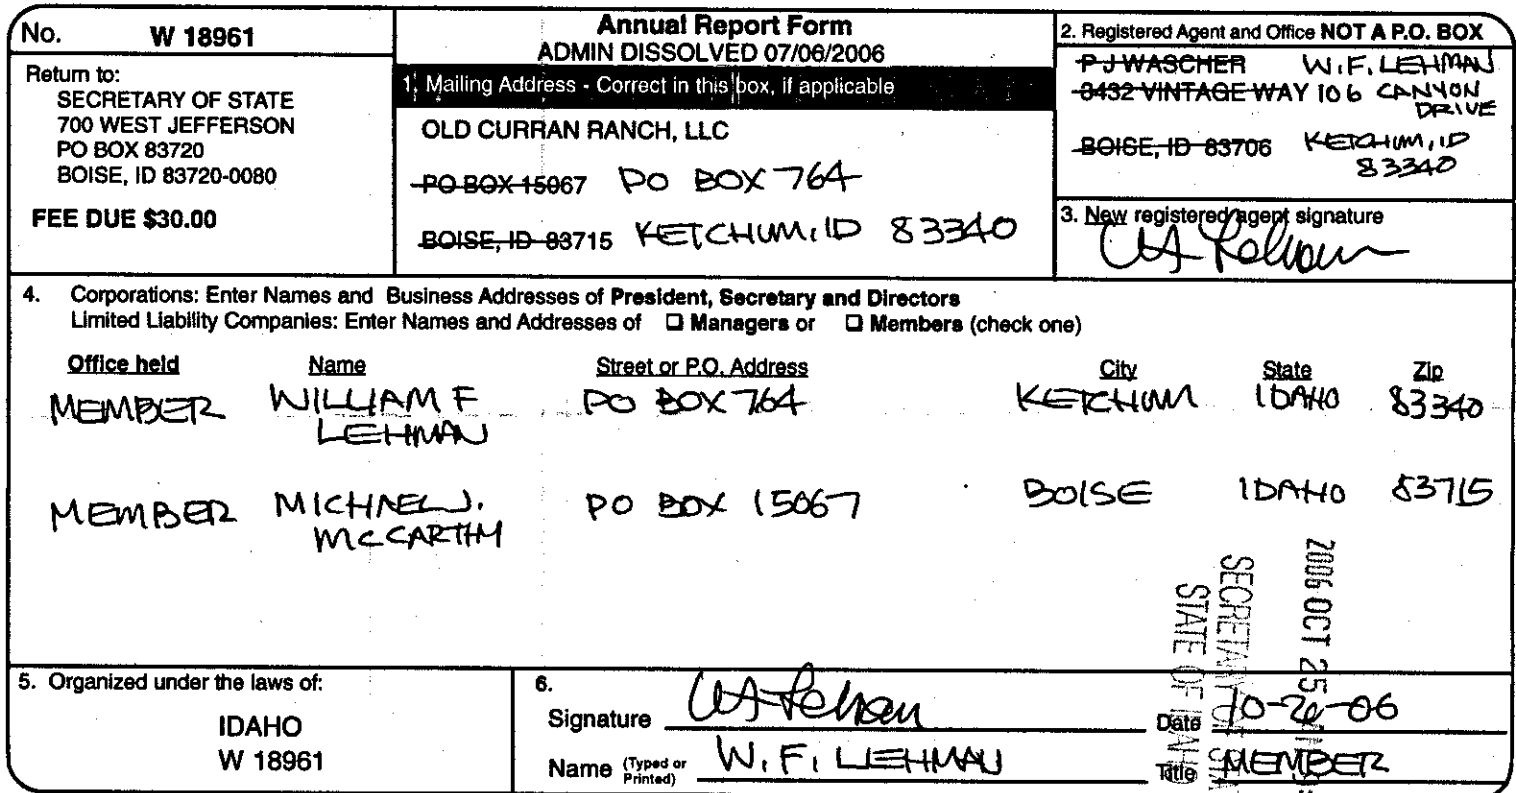 No. W 18961
Return to:
SECRETARY OF STATE
700 WEST JEFFERSON
PO BOX 83720
BOISE, ID 83720-0080
FEE DUE $30.00
Annual Report Form
ADMIN DISSOLVED 07/06/2006
1. Mailing Address - Correct in this box, if applicable
OLD CURRAN RANCH, LLC
PO BOX 15067 PO BOX 764
BOISE, ID 83715 KETCHUM, ID 83340
2. Registered Agent and Office NOT A P.O. BOX
P J WASCHER W.F. LEHMAN
3432 VINTAGE WAY 106 CANYON
DRIVE
BOISE, ID 83706 KETCHUM, ID
83340
3. New registered agent signature
4. Corporations: Enter Names and Business Addresses of President, Secretary and Directors
Limited Liability Companies: Enter Names and Addresses of ❑ Managers or ❑ Members (check one)
Office held Name Street or P.O. Address City State Zip
MEMBER WILLIAM F PO BOX 764 KETCHUM IDAHO 83340
LEHMAN
MEMBER MICHAEL J. PO BOX 15067 BOISE IDAHO 83715
MCCARTHY
2006 OCT 25
SECRETARY OF STA
STATE OF IDAHO
5. Organized under the laws of:
IDAHO
W 18961
6.
Signature W F Lehman Date
Name (Typed or Printed) W. F. LEHMAN Title MEMBER